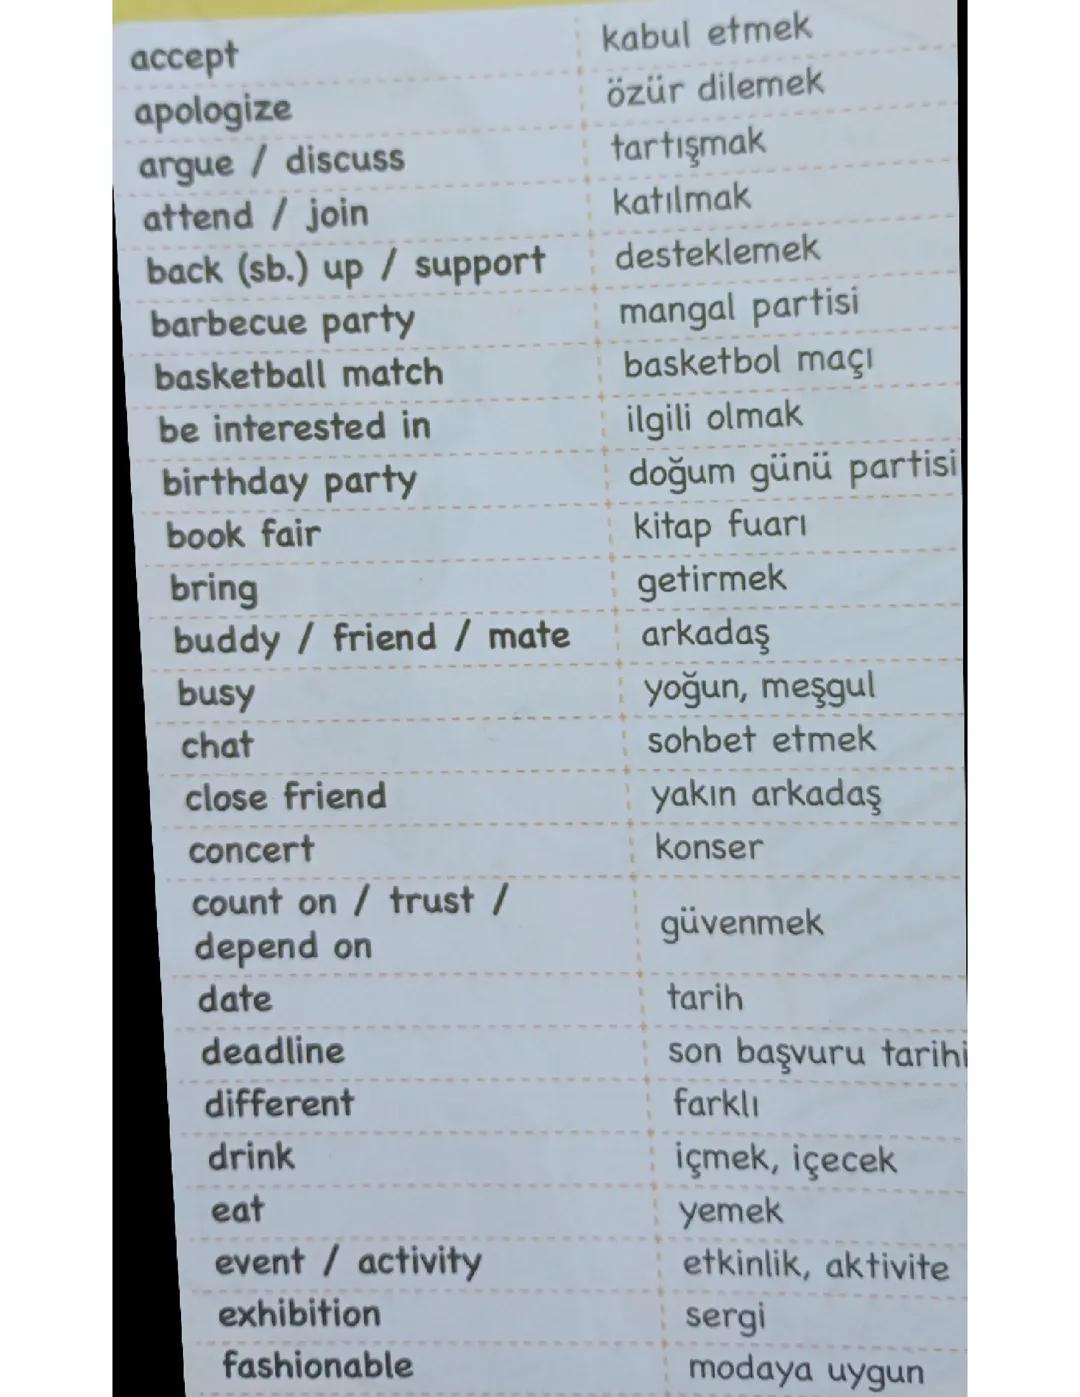 accept kabul etmek
apologize özür dilemek
argue / discuss tartışmak
attend / join katılmak
back (sb.) up / support desteklemek
barbecue party mangal partisi
basketball match basketbol maçı
be interested in ilgili olmak
birthday party doğum günü partisi
book fair kitap fuarı
bring getirmek
buddy / friend / mate arkadaş
busy yoğun, meşgul
chat sohbet etmek
close friend yakın arkadaş
concert konser
count on / trust /
depend on güvenmek
date tarih
deadline son başvuru tarihi
different farklı
drink içmek, içecek
eat yemek
event / activity etkinlik, aktivite
exhibition sergi
fashionable modaya uygun